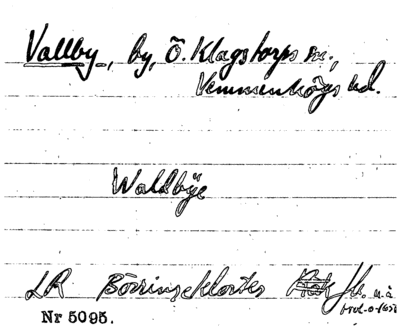 Vallby, by, Ö. Klagstorps sn.,
Vemmenhögs hd.
Waldbÿe
LR Börringekloster Jb. u. å.
Nr 5095.